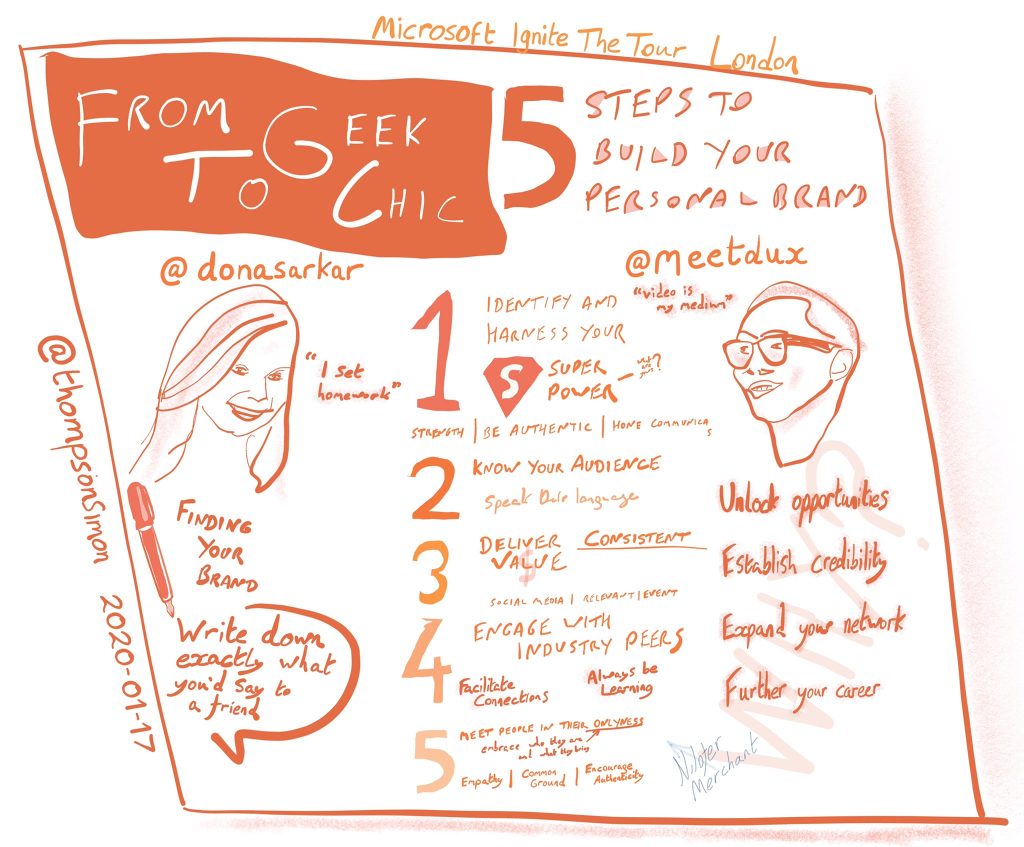 Microsoft Ignite The Tour London
FROM
TO GEEK
TO CHIC
5 STEPS TO
BUILD YOUR
PERSONAL BRAND
@donasarkar
"I set
homework"
@meetdux
"video is
my medium"
@thompsonSimon 2020-01-17
FINDING
YOUR
BRAND
Write down
exactly what
you'd say to
a friend
1 IDENTIFY AND
HARNESS YOUR
S SUPER
POWER - what are yours?
STRENGTH | BE AUTHENTIC | HONE COMMUNICAS
2 KNOW YOUR AUDIENCE
Speak language
3 DELIVER CONSISTENT
VALUE
$
SOCIAL MEDIA | RELEVANT | EVENT
4 ENGAGE WITH
INDUSTRY PEERS
Facilitate
Connections
Always be
Learning
5 MEET PEOPLE IN THEIR ONLYNESS
embrace who they are
and what they bring
Empathy | Common Ground | Encourage Authenticity
WHY?
Unlock opportunities
Establish credibility
Expand your network
Further your career
Nilofer
Merchant